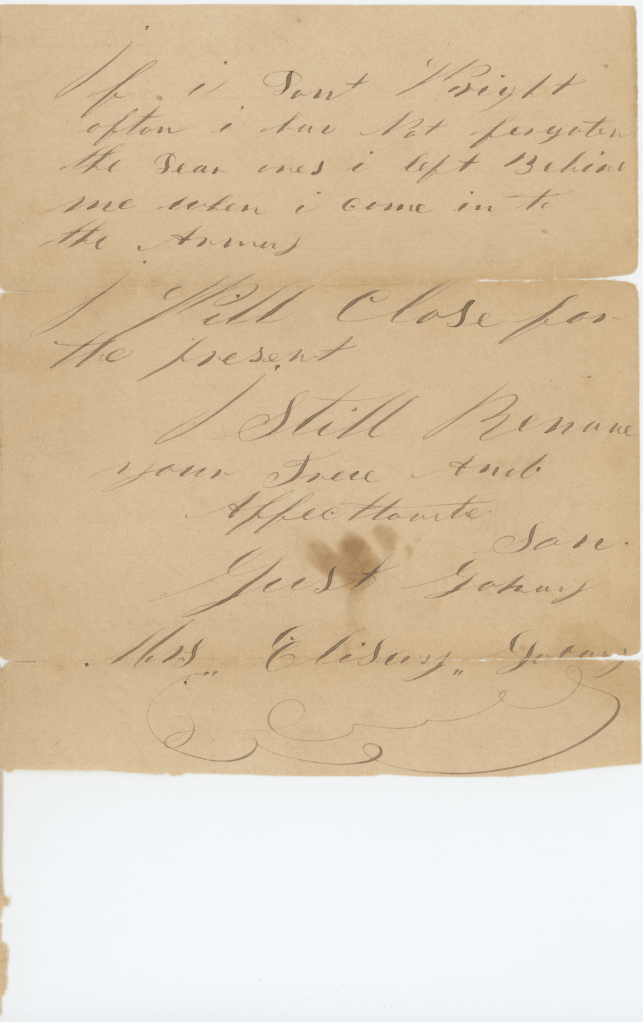 If i Dont Wright
ofton i hav Not forgoten
the Dear ones i left Behind
me when i come in to
the Army
I Will Close for
the present
I Still Remane
your Treue And
Affecttionate
Son.
Gust
Mrs